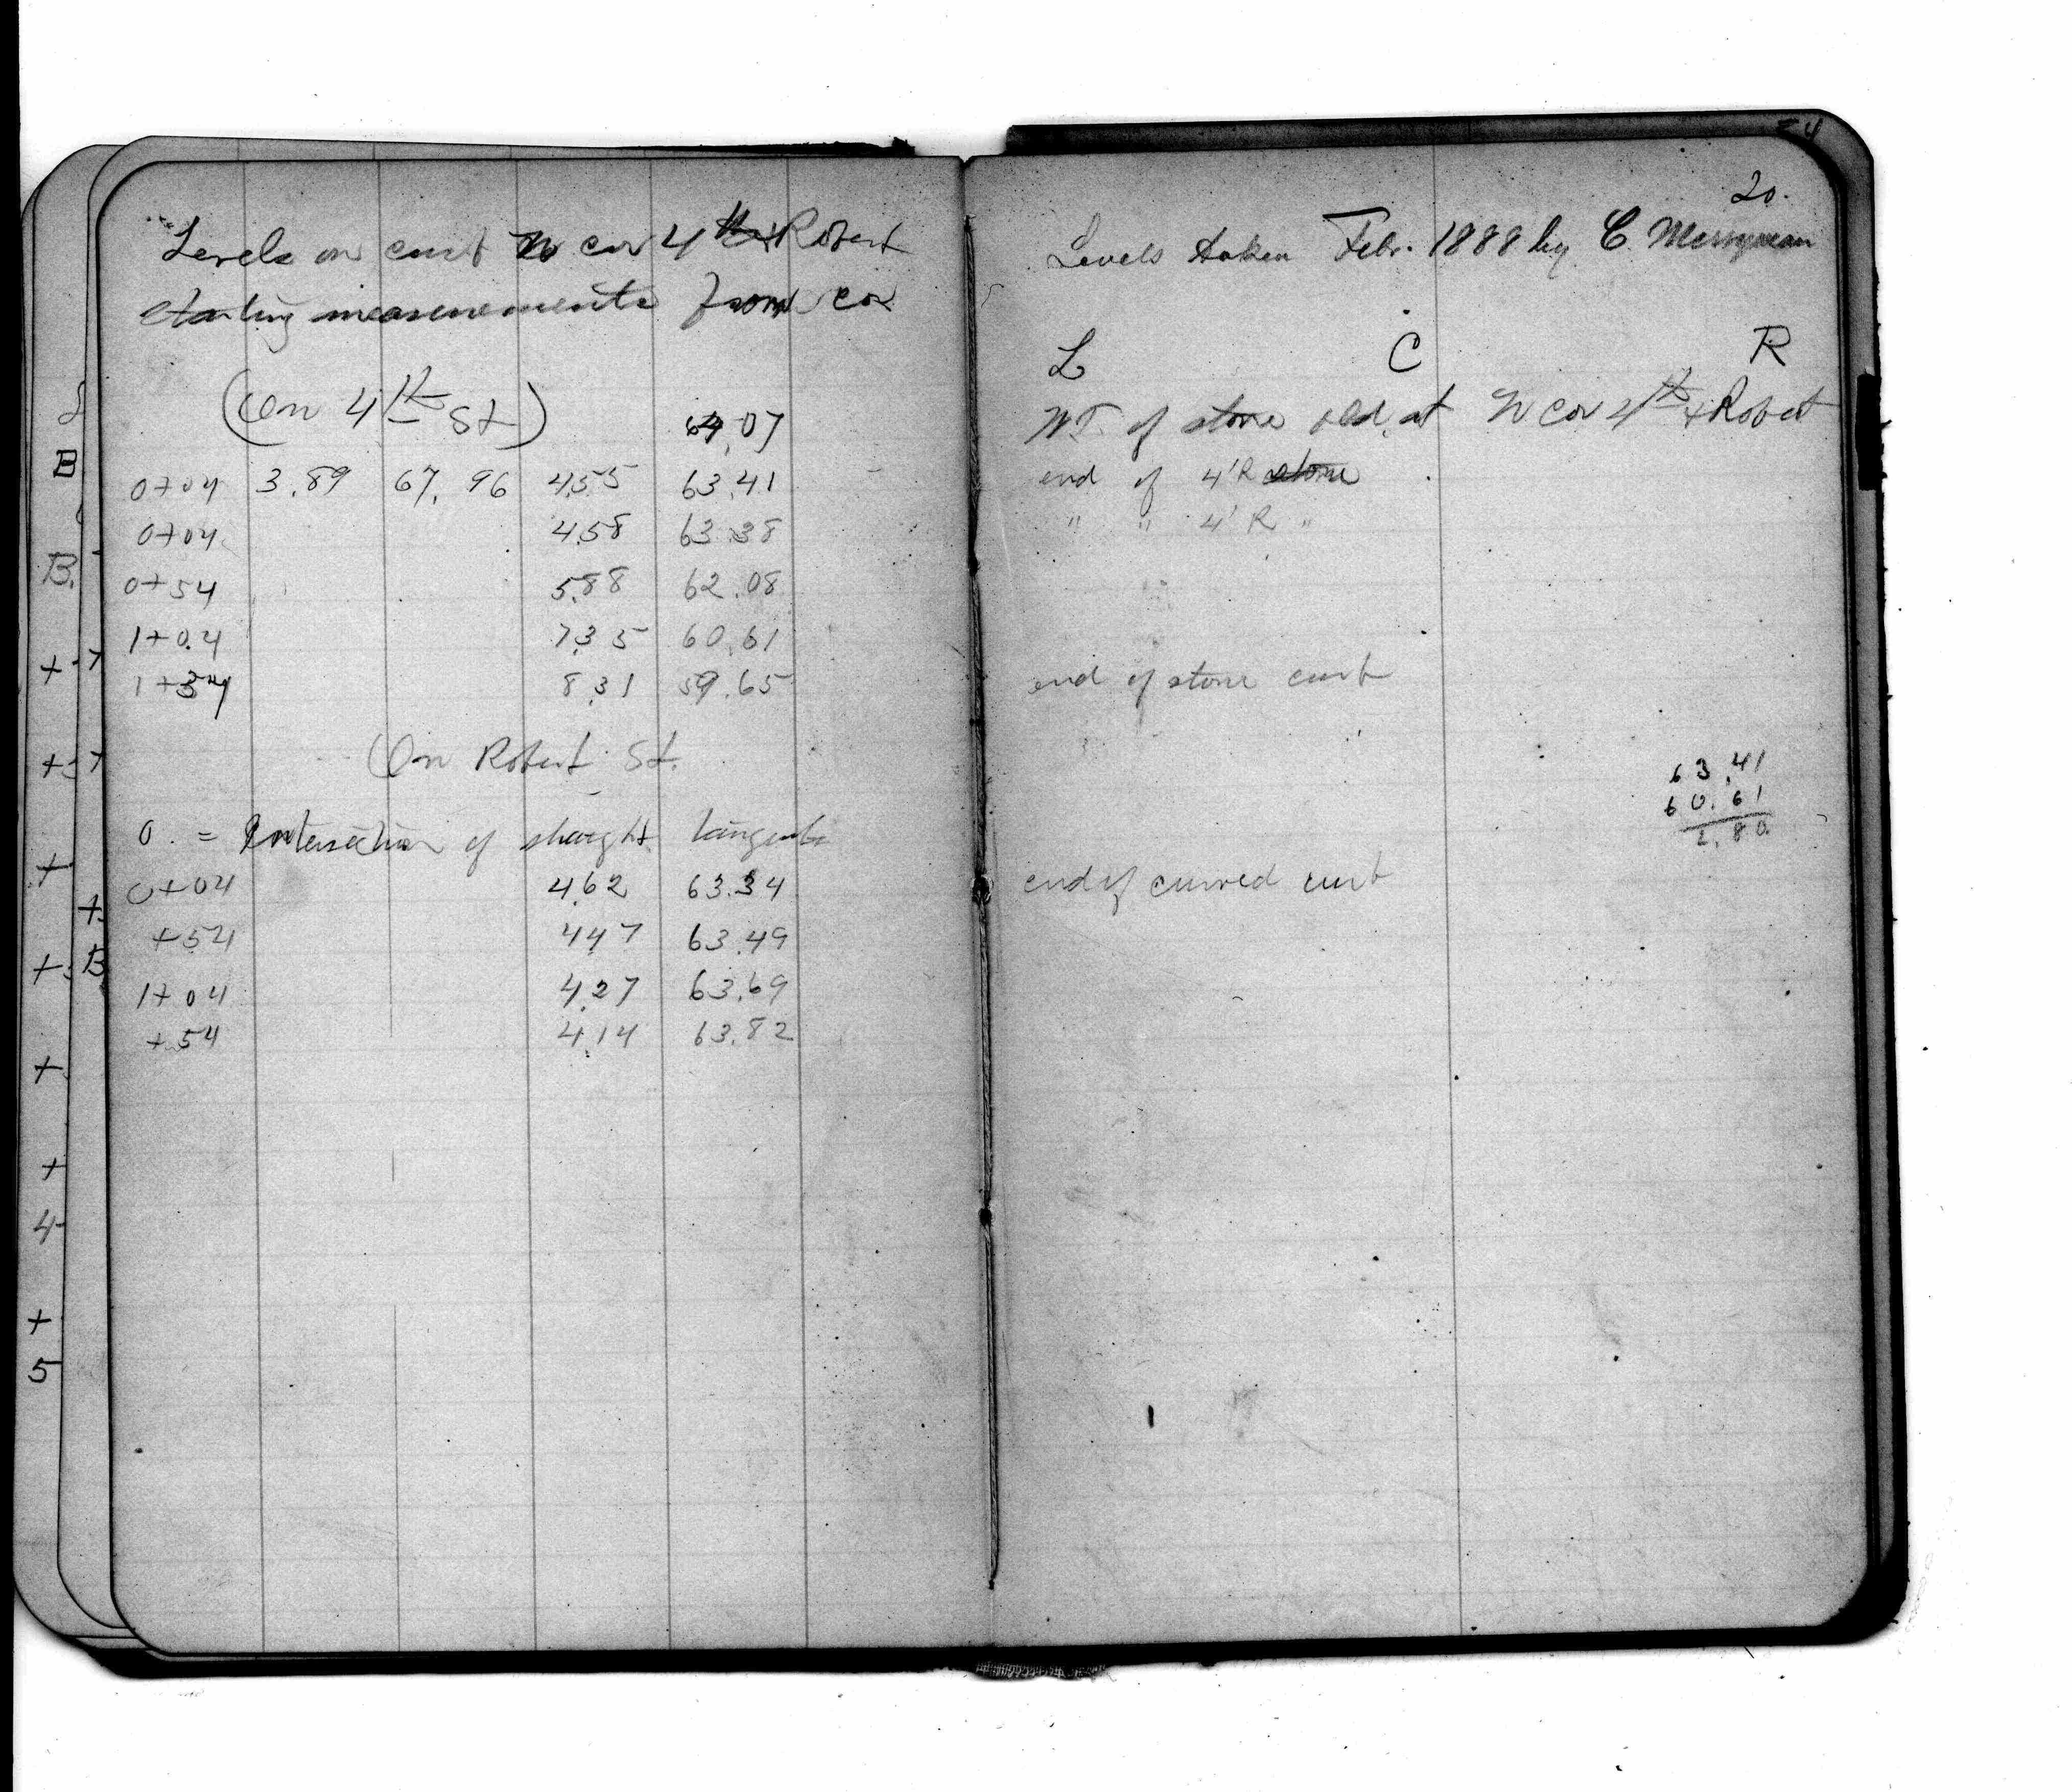 Levels on curb N cor 4th & Robert
starting measurements from cor
(On 4th St)
64.07
0+04 3.89 67.96 4.55 63.41
0+04 4.58 63.38
0+54 5.88 62.08
1+04 7.35 60.61
1+34 8.31 59.65
(On Robert St.
0. = Intersection of straight tangents
0+04 4.62 63.34
+54 4.47 63.49
1+04 4.27 63.69
+54 4.14 63.82
20.
Levels taken Febr. 1888 by C. Merryman
L C R
of stone old. at N cor 4th & Robert
end of 4'R stone
" " 4'R "
end of stone curb
63.41
60.61
2.80
end of curved curb
B
B.
+
+
+
+
+
+
4
+
5
+
B